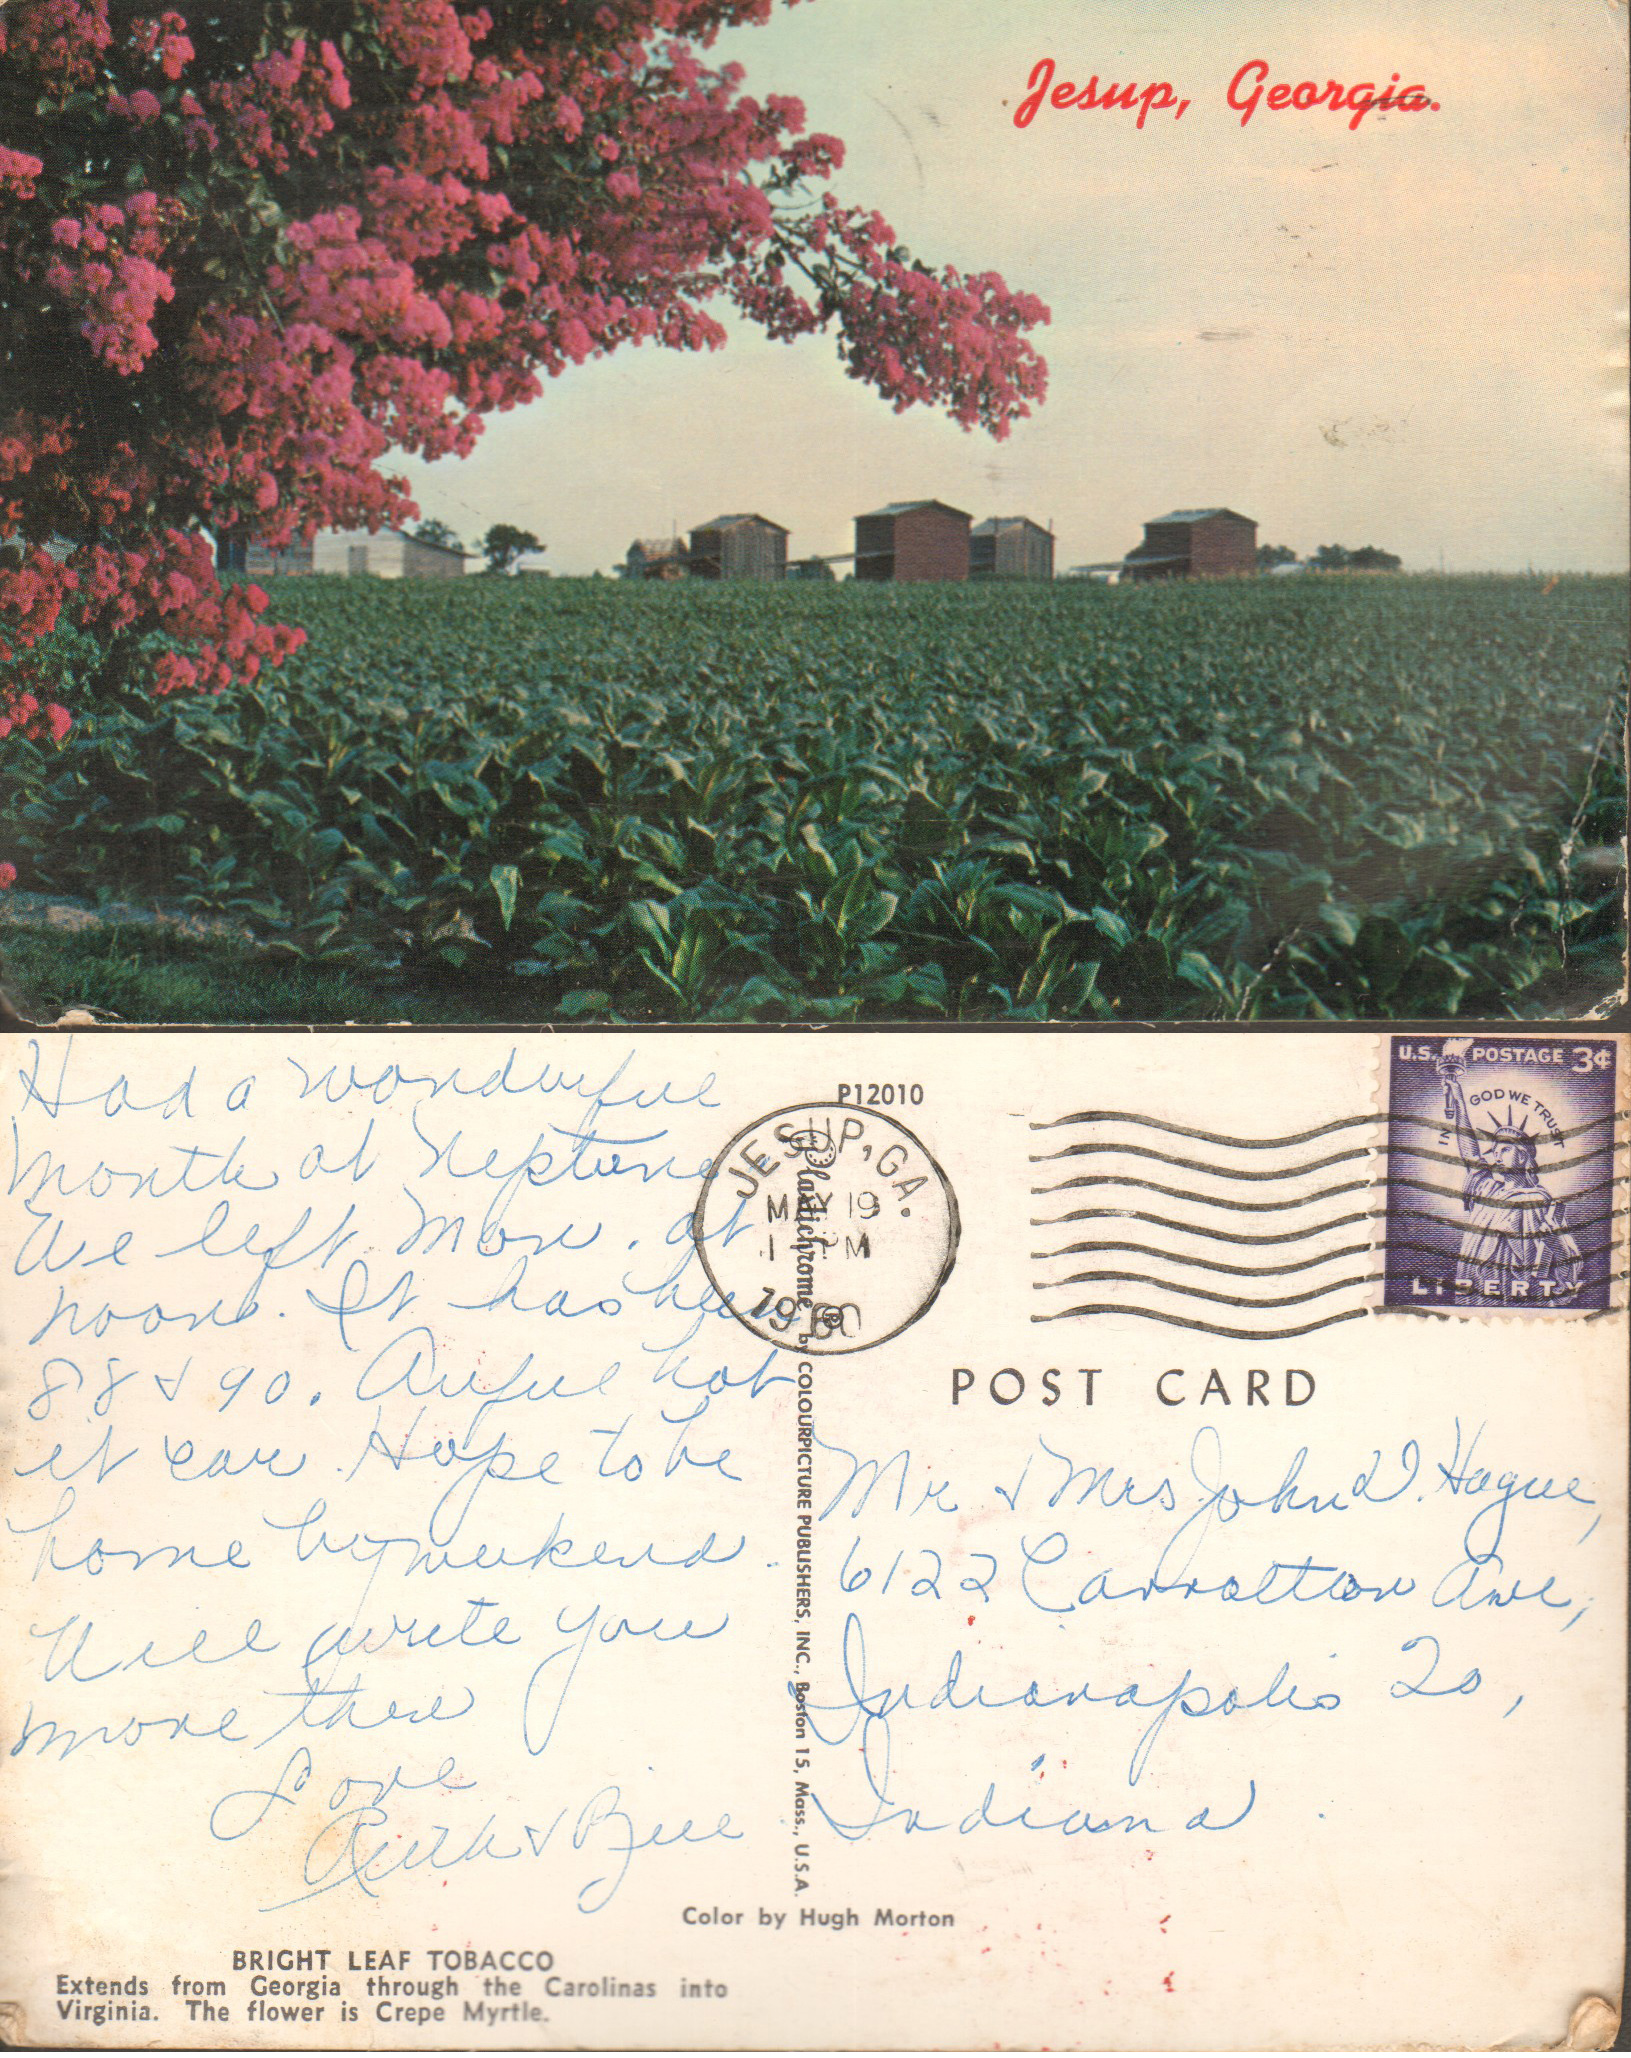 Jesup, Georgia.
Had a wonderful
month at Neptune
We left Mon. at
noon. It has been
88 & 90. Awful hot
in car. Hope to be
home by weekend.
Will write you
more then
Love
Ruth & Bill
BRIGHT LEAF TOBACCO
Extends from Georgia through the Carolinas into
Virginia. The flower is Crepe Myrtle.
P12010
Plastichrome ® by COLOURPICTURE PUBLISHERS, INC., Boston 15, Mass., U.S.A.
Color by Hugh Morton
JESUP, GA.
MAY 19
1 PM
1960
U.S. POSTAGE 3¢
IN GOD WE TRUST
LIBERTY
POST CARD
Mr & Mrs John D. Hague,
6122 Carrollton Ave,
Indianapolis 20,
Indiana.